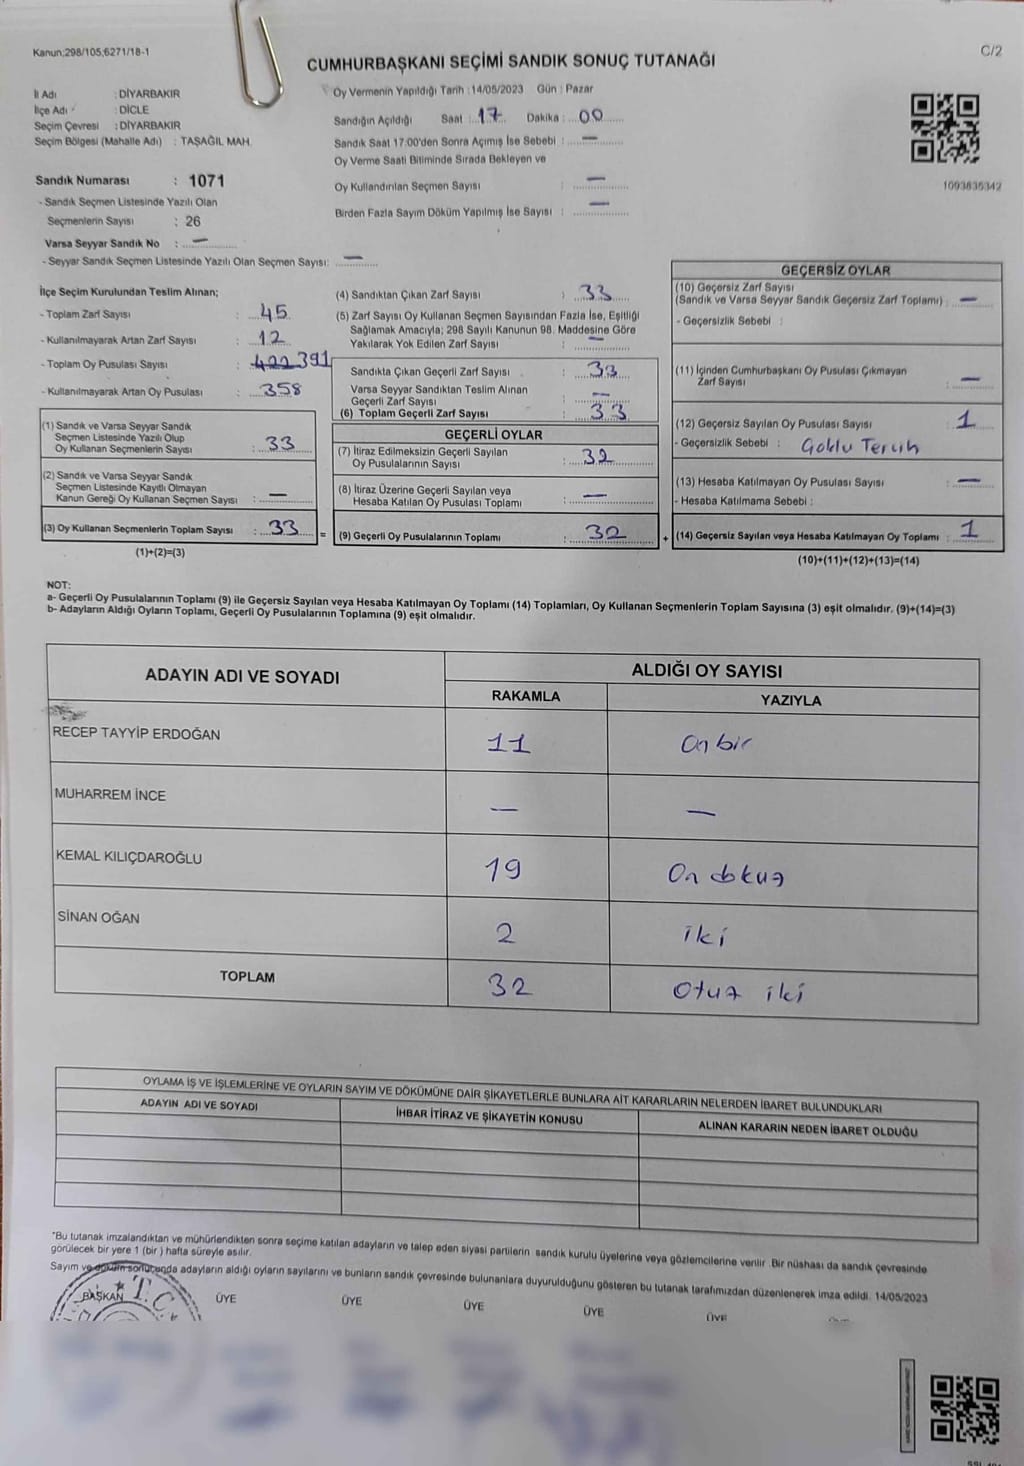 Kanun;298/105;6271/18-1
C/2
CUMHURBAŞKANI SEÇİMİ SANDIK SONUÇ TUTANAĞI
İl Adı : DİYARBAKIR
İlçe Adı : DİCLE
Seçim Çevresi : DİYARBAKIR
Seçim Bölgesi (Mahalle Adı) : TAŞAĞIL MAH.
Oy Vermenin Yapıldığı Tarih :14/05/2023 Gün : Pazar
Sandığın Açıldığı Saat : 17 Dakika : 00
Sandık Saat 17:00'den Sonra Açmış İse Sebebi : —
Oy Verme Saati Bitiminde Sırada Bekleyen ve
Oy Kullandırılan Seçmen Sayısı : —
Birden Fazla Sayım Döküm Yapılmış İse Sayısı : —
1093835342
Sandık Numarası : 1071
- Sandık Seçmen Listesinde Yazılı Olan
Seçmenlerin Sayısı : 26
Varsa Seyyar Sandık No : —
- Seyyar Sandık Seçmen Listesinde Yazılı Olan Seçmen Sayısı: —
İlçe Seçim Kurulundan Teslim Alınan;
- Toplam Zarf Sayısı : 45
- Kullanılmayarak Artan Zarf Sayısı : 12
- Toplam Oy Pusulası Sayısı : 422 391
- Kullanılmayarak Artan Oy Pusulası : 358
(1) Sandık ve Varsa Seyyar Sandık
Seçmen Listesinde Yazılı Olup
Oy Kullanan Seçmenlerin Sayısı : 33
(2) Sandık ve Varsa Seyyar Sandık
Seçmen Listesinde Kayıtlı Olmayan
Kanun Gereği Oy Kullanan Seçmen Sayısı : —
(3) Oy Kullanan Seçmenlerin Toplam Sayısı : 33
(1)+(2)=(3)
(4) Sandıktan Çıkan Zarf Sayısı : 33
(5) Zarf Sayısı Oy Kullanan Seçmen Sayısından Fazla İse, Eşitliği
Sağlamak Amacıyla; 298 Sayılı Kanunun 98. Maddesine Göre
Yakılarak Yok Edilen Zarf Sayısı : —
Sandıkta Çıkan Geçerli Zarf Sayısı : 33
Varsa Seyyar Sandıktan Teslim Alınan
Geçerli Zarf Sayısı : —
(6) Toplam Geçerli Zarf Sayısı : 33
GEÇERLİ OYLAR
(7) İtiraz Edilmeksizin Geçerli Sayılan
Oy Pusulalarının Sayısı : 32
(8) İtiraz Üzerine Geçerli Sayılan veya
Hesaba Katılan Oy Pusulası Toplamı : —
= (9) Geçerli Oy Pusulalarının Toplamı : 32
GEÇERSİZ OYLAR
(10) Geçersiz Zarf Sayısı
(Sandık ve Varsa Seyyar Sandık Geçersiz Zarf Toplamı) : —
- Geçersizlik Sebebi :
(11) İçinden Cumhurbaşkanı Oy Pusulası Çıkmayan
Zarf Sayısı : —
(12) Geçersiz Sayılan Oy Pusulası Sayısı : 1
- Geçersizlik Sebebi : Çoklu Tercih
(13) Hesaba Katılmayan Oy Pusulası Sayısı : —
- Hesaba Katılmama Sebebi :
+ (14) Geçersiz Sayılan veya Hesaba Katılmayan Oy Toplamı : 1
(10)+(11)+(12)+(13)=(14)
NOT:
a- Geçerli Oy Pusulalarının Toplamı (9) ile Geçersiz Sayılan veya Hesaba Katılmayan Oy Toplamı (14) Toplamları, Oy Kullanan Seçmenlerin Toplam Sayısına (3) eşit olmalıdır. (9)+(14)=(3)
b- Adayların Aldığı Oyların Toplamı, Geçerli Oy Pusulalarının Toplamına (9) eşit olmalıdır.
ADAYIN ADI VE SOYADI
ALDIĞI OY SAYISI
RAKAMLA YAZIYLA
RECEP TAYYİP ERDOĞAN 11 On bir
MUHARREM İNCE — —
KEMAL KILIÇDAROĞLU 19 On dokuz
SİNAN OĞAN 2 iki
TOPLAM 32 Otuz iki
OYLAMA İŞ VE İŞLEMLERİNE VE OYLARIN SAYIM VE DÖKÜMÜNE DAİR ŞİKAYETLERLE BUNLARA AİT KARARLARIN NELERDEN İBARET BULUNDUKLARI
ADAYIN ADI VE SOYADI İHBAR İTİRAZ VE ŞİKAYETİN KONUSU ALINAN KARARIN NEDEN İBARET OLDUĞU
*Bu tutanak imzalandıktan ve mühürlendikten sonra seçime katılan adayların ve talep eden siyasi partilerin sandık kurulu üyelerine veya gözlemcilerine verilir. Bir nüshası da sandık çevresinde
görülecek bir yere 1 (bir ) hafta süreyle asılır.
Sayım ve döküm sonucunda adayların aldığı oyların sayılarını ve bunların sandık çevresinde bulunanlara duyurulduğunu gösteren bu tutanak tarafımızdan düzenlenerek imza edildi. 14/05/2023
BAŞKAN ÜYE ÜYE ÜYE ÜYE ÜYE
T.C.